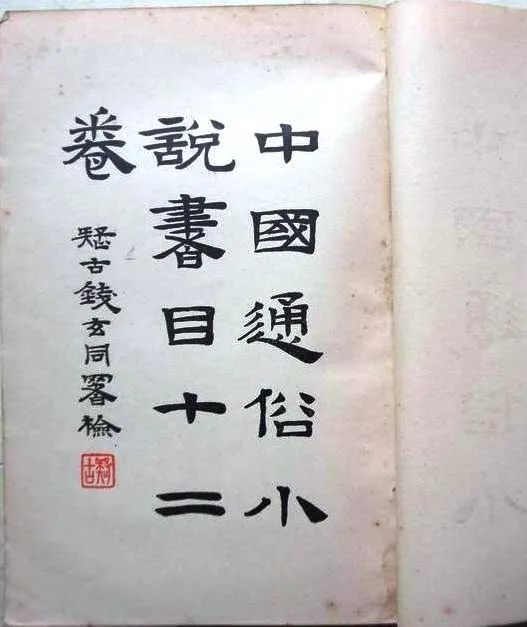 中國通俗小
說書目十二
卷
疑古錢玄同署檢
疑古